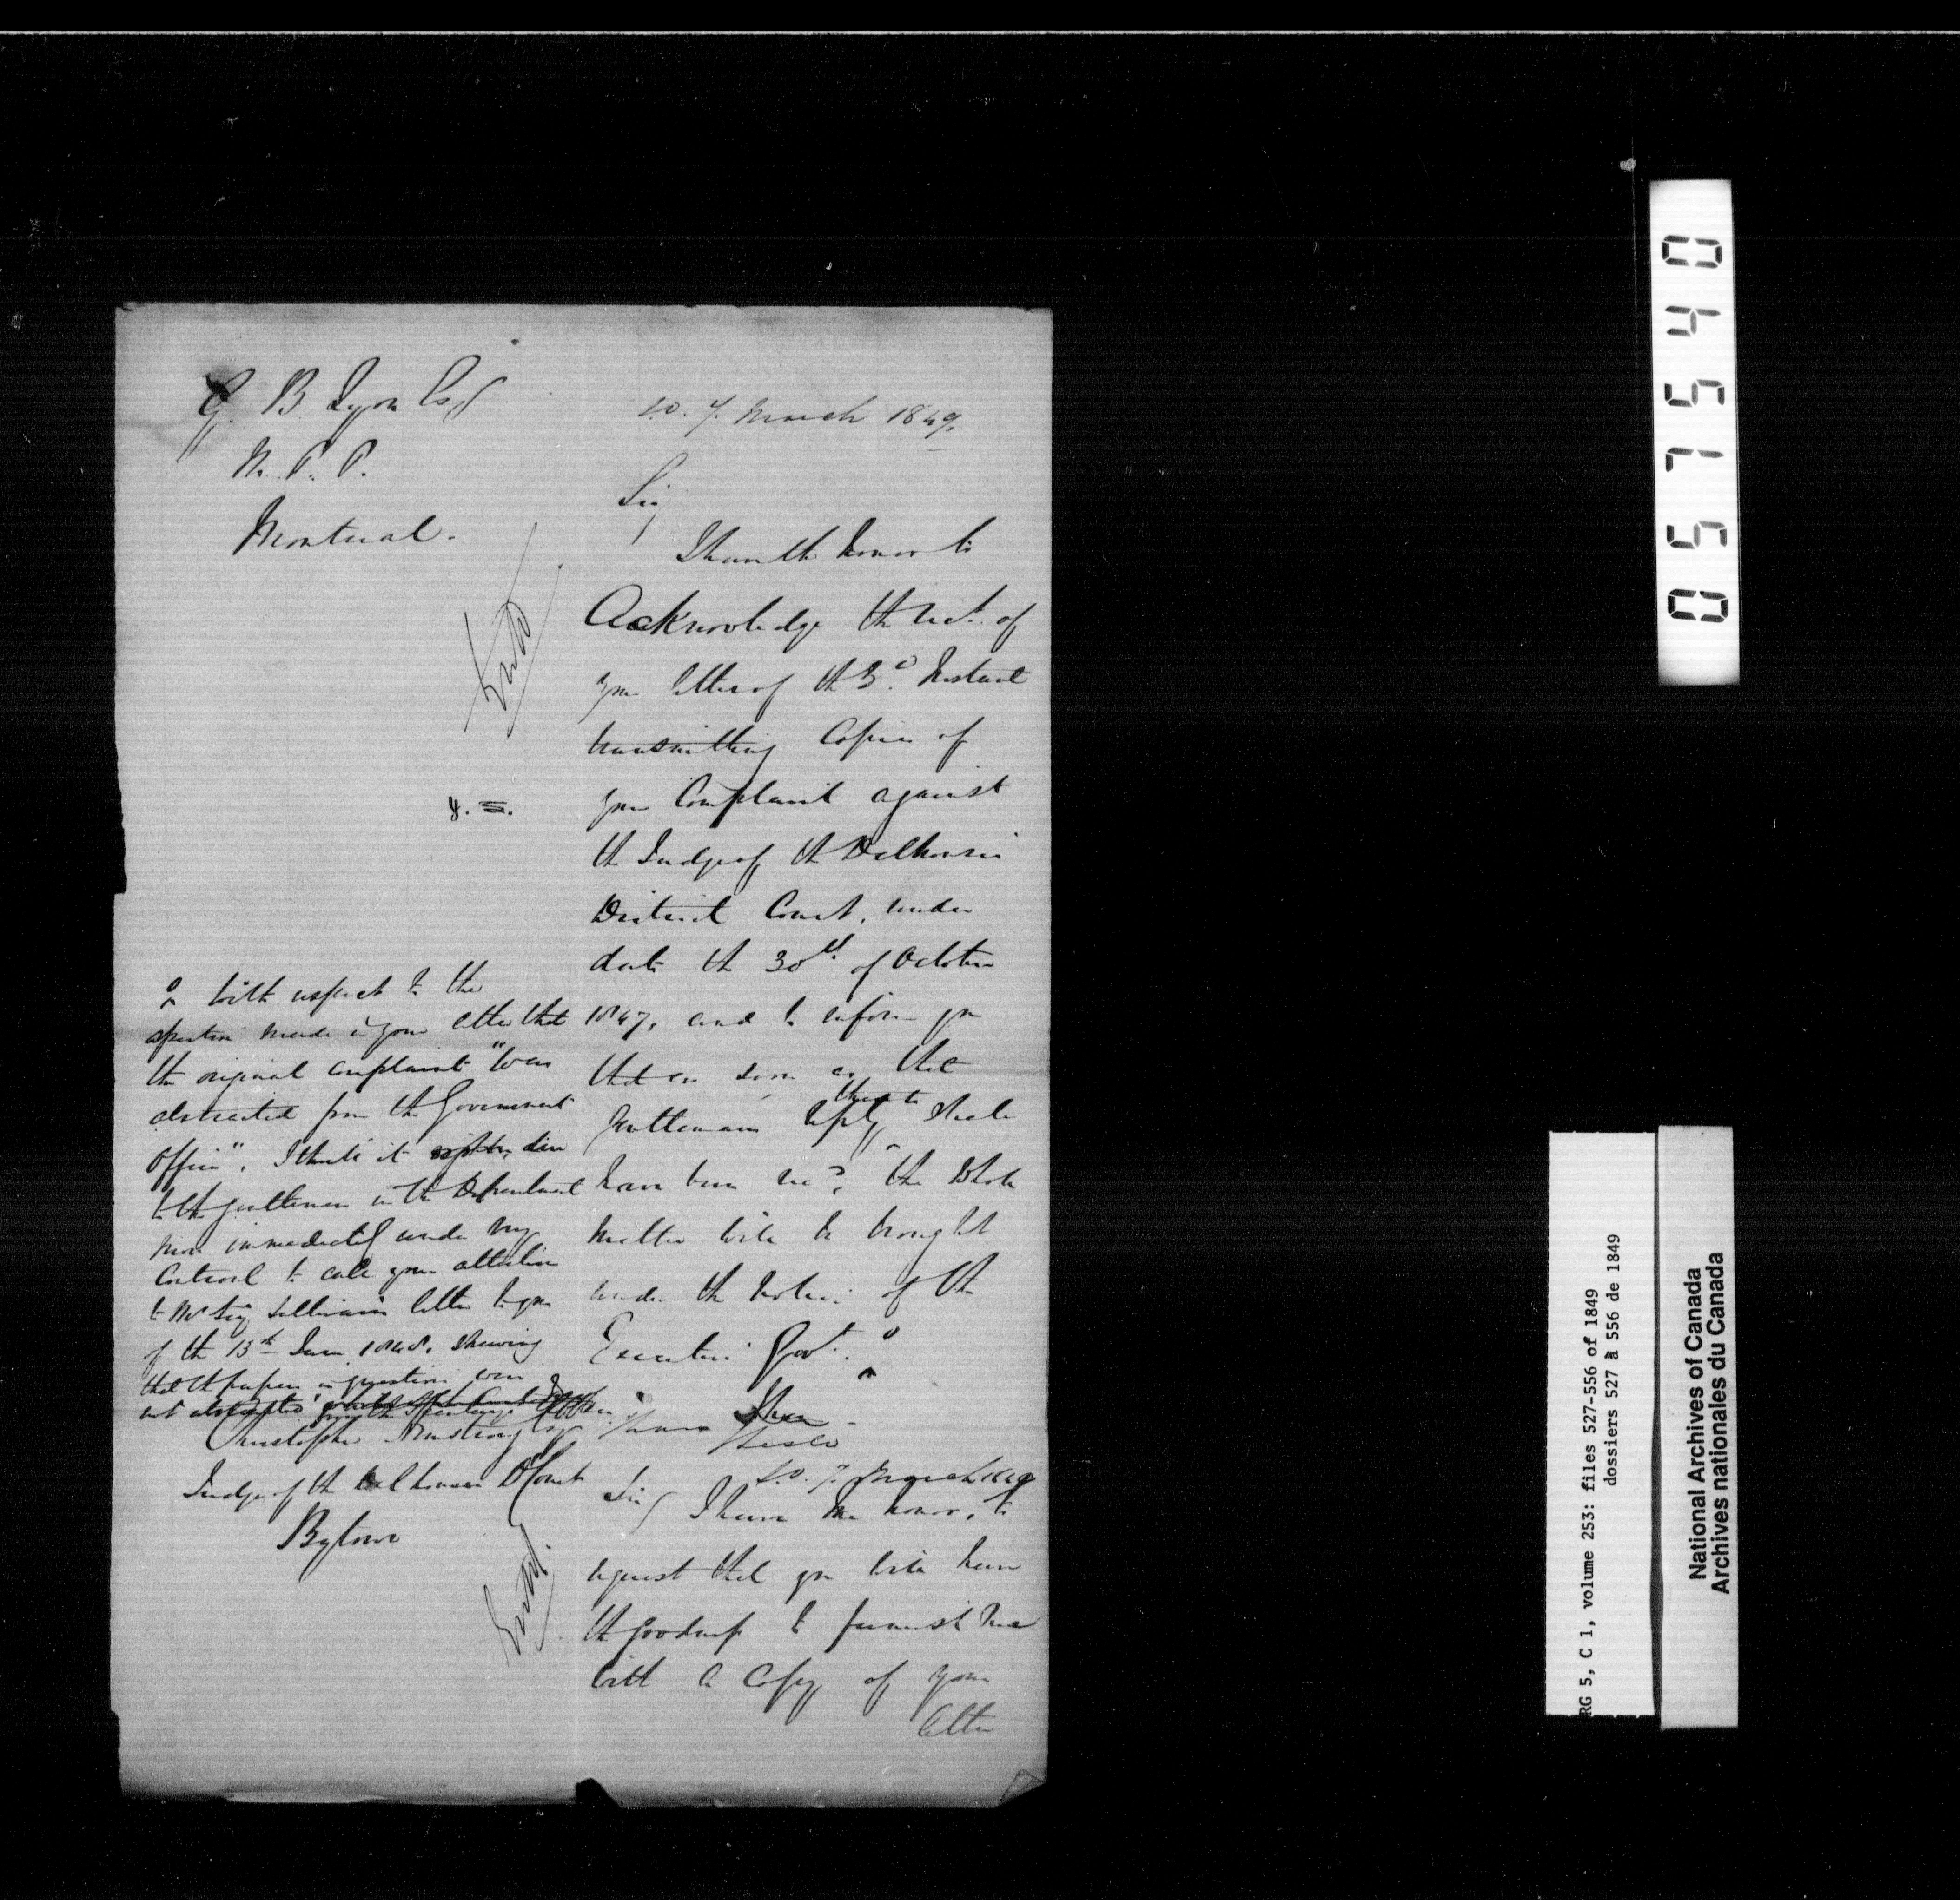 G. B. Lyon Esq
M. P. P.
Montreal.
S.O. 7. March 1849.
Sir
I have the honor to
Acknowledge the rect. of
your letter of the 3d. Instant
transmitting Copies of
your Complaint against
the Judge of the Dalhousie
District Court, under
date the 30th. of October
1847, and to inform you
that as soon as that
gentleman's reply thereto shall
have been recd., the whole
matter will be brought
under the notice of the
Executive Govt.
I have
o with respect to the
assertion made in your letter that
the original complaint "was
abstracted from the Government
Office", I think it due
to the gentlemen in the Department
more immediately under my
Control to call your attention
to Mr Secy. Sullivan's letter to you
of the 13th June 1848. shewing
that the papers in question were
not abstracted
Christopher Armstrong Esq
Judge of the Dalhousie D Court
Bytown
S.O. 7. March 1849
Sir I have the honor, to
request that you will have
the goodness to furnish me
with a Copy of your
letter
057540
RG 5, C 1, volume 253: files 527-556 of 1849
dossiers 527 à 556 de 1849
National Archives of Canada
Archives nationales du Canada